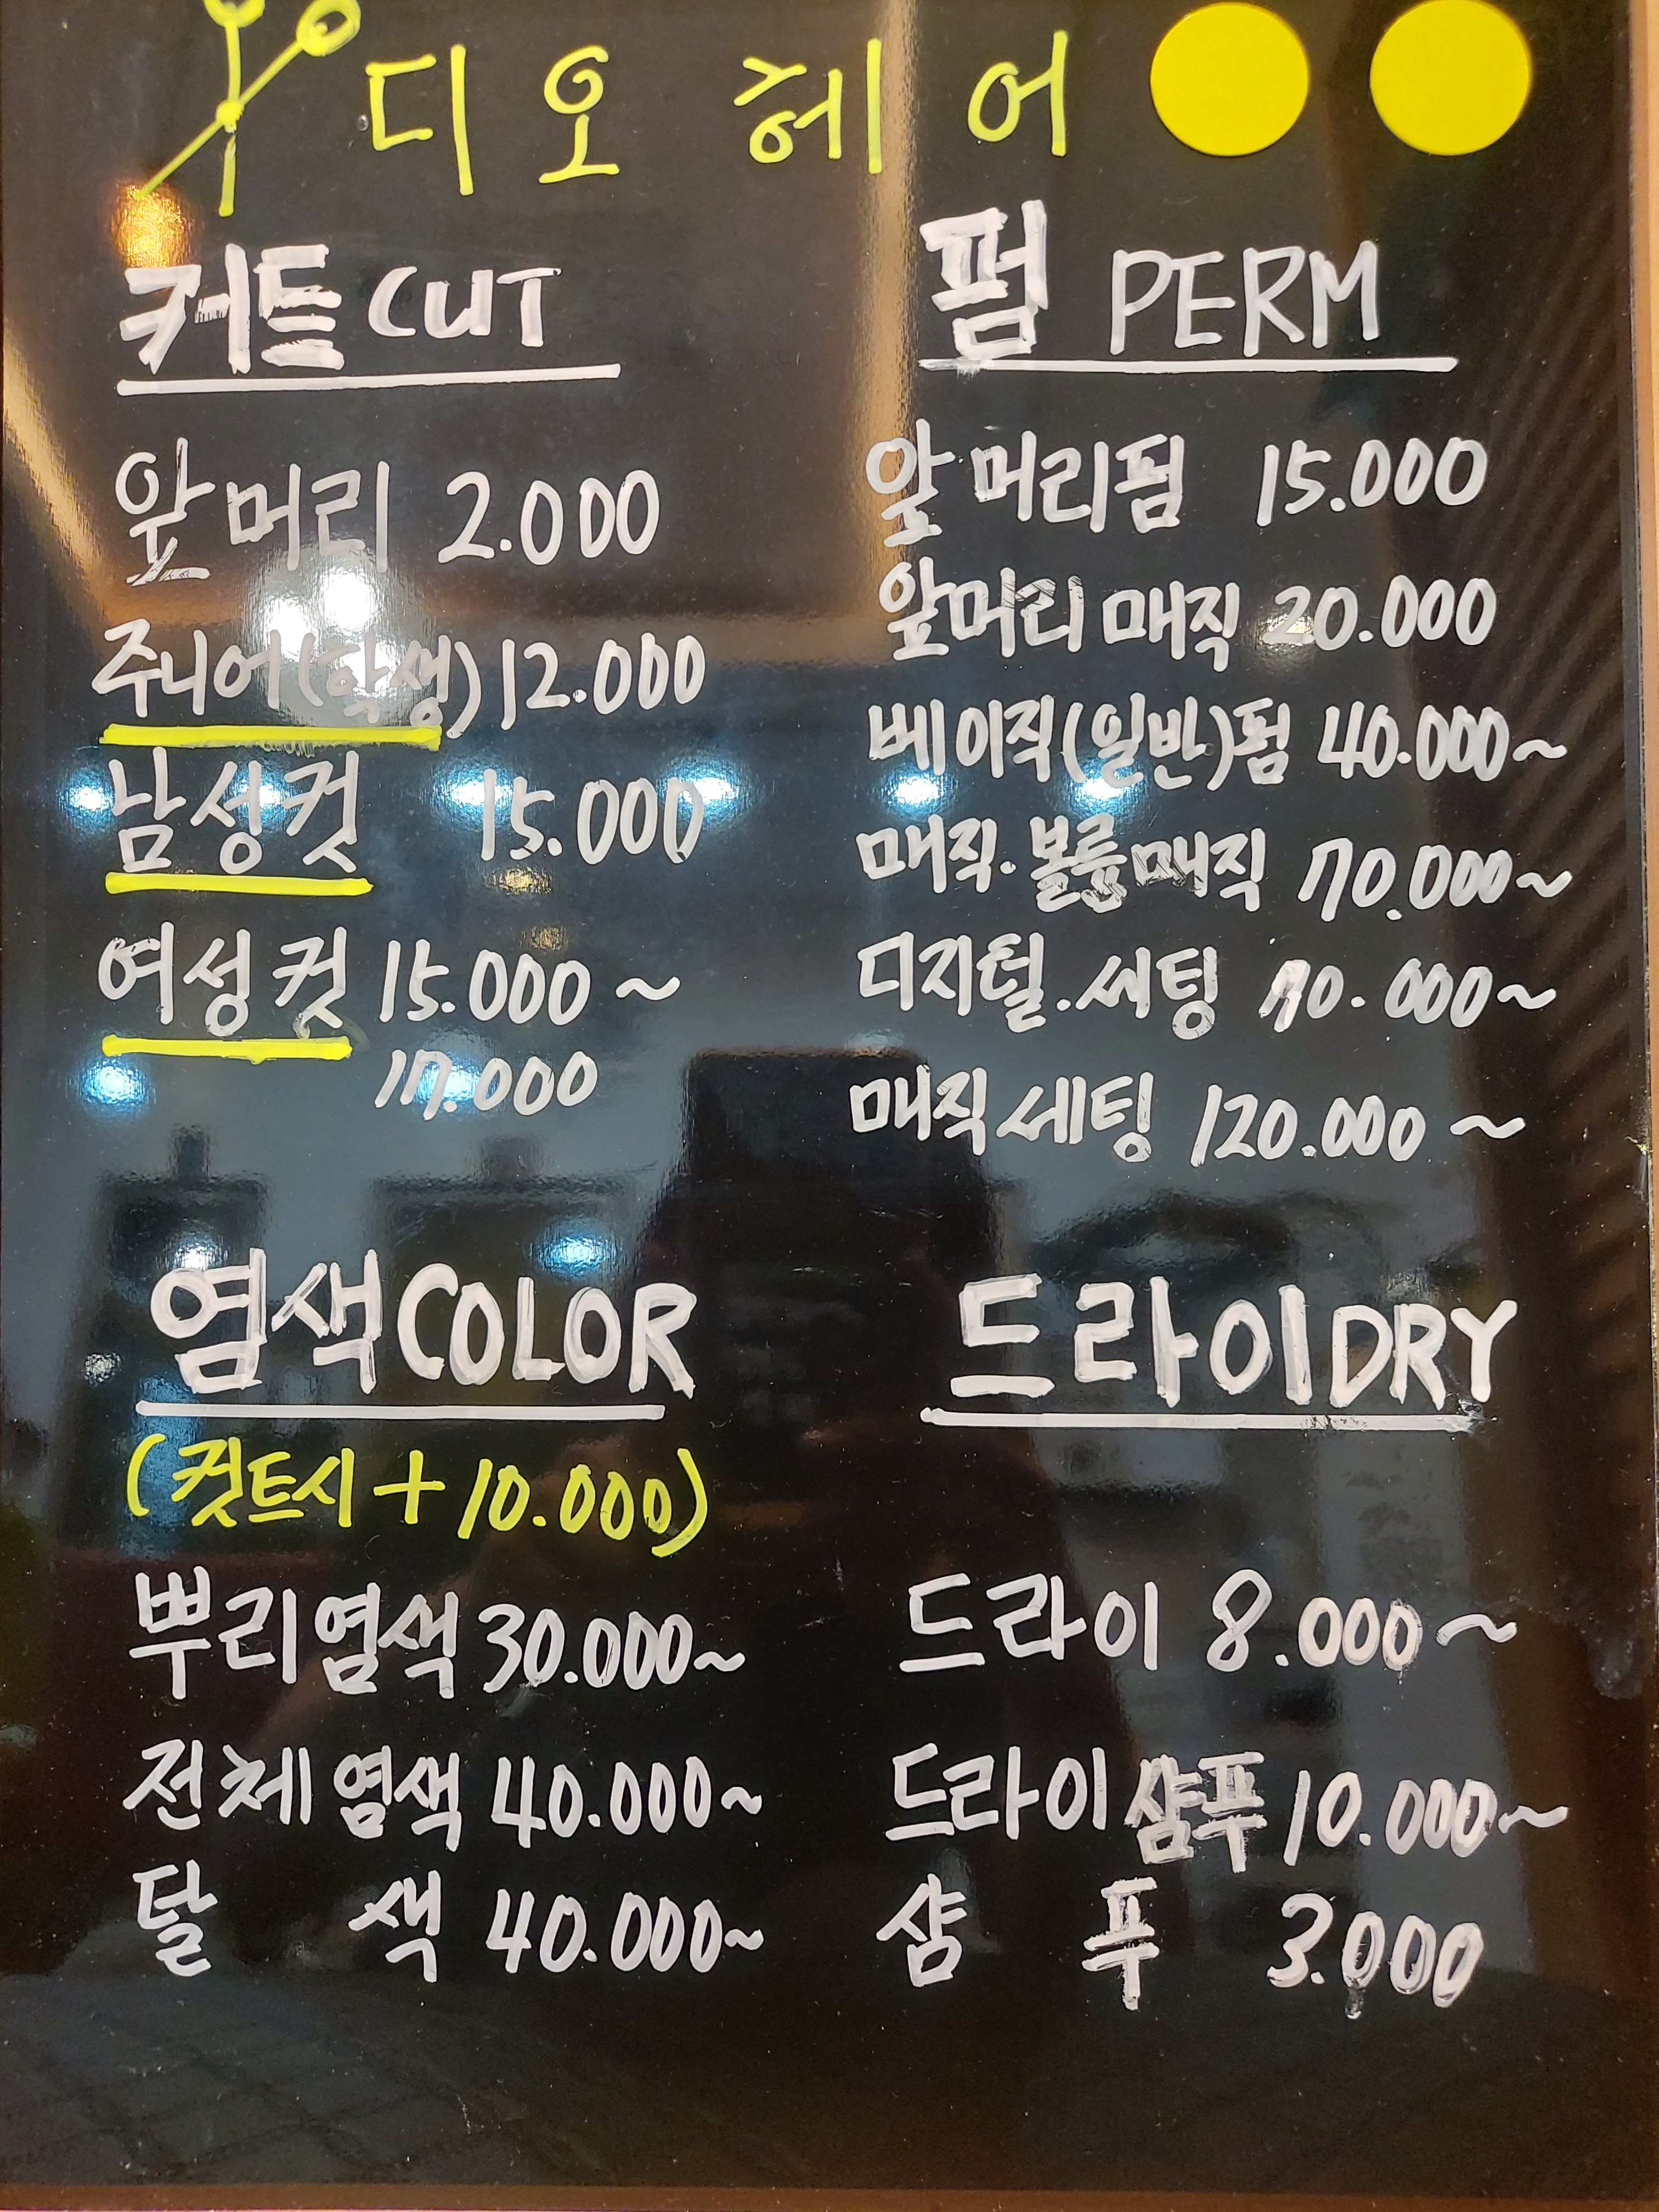 디오헤어
커트 CUT
앞머리 2.000
주니어(학생) 12.000
남성컷 15.000
여성컷 15.000~
17.000
펌 PERM
앞머리펌 15.000
앞머리 매직 20.000
베이직(일반)펌 40.000~
매직.볼륨매직 70.000~
디지털.세팅 70.000~
매직세팅 120.000~
염색 COLOR
(컷트시 + 10.000)
뿌리염색 30.000~
전체염색 40.000~
탈색 40.000~
드라이 DRY
드라이 8.000~
드라이샴푸 10.000~
샴푸 3.000